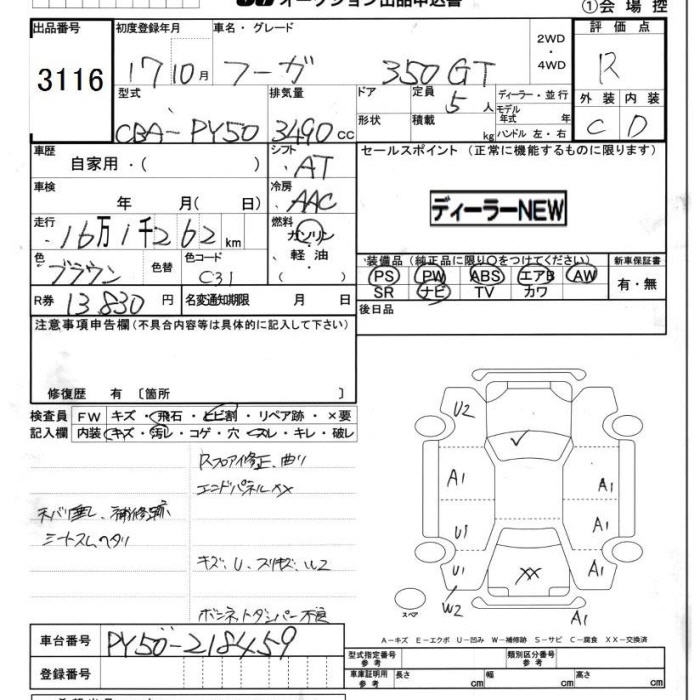 オークション出品申込書
①会場控
出品番号 3116
初度登録年月 17 10月
車名・グレード フーガ 350GT
2WD・4WD
評価点 R
外装 C 内装 D
型式 CBA-PY50
排気量 3490cc
ドア形状
定員 5人
積載 kg
ディーラー・並行
モデル年式 年
ハンドル 左・右
車歴 自家用・( )
シフト AT
セールスポイント (正常に機能するものに限ります)
車検 年 月( 日)
冷房 AAC
ディーラーNEW
走行 16万1千262km
燃料 ガソリン・軽油・( )
色 ブラウン 色替
色コード C31
装備品 (純正品に限り○をつけてください)
新車保証書 有・無
PS PW ABS エアB AW
SR ナビ TV カワ
R券 13830円
名変通知期限 月 日
後日品
注意事項申告欄(不具合内容等は具体的に記入して下さい)
修復歴 有 〔箇所 〕
検査員記入欄
FW キズ・飛石・ヒビ割・リペア跡・×要
内装 キズ・汚レ・コゲ・穴・スレ・キレ・破レ
Rフロア修正、曲り
エンドパネルXX
ネバリ悪し、補修跡
シートスレ、ヘタリ
キズ、U、スリキズ、W2
ボンネットダンパー不良
U2
A1 A1
U1 A1
U1 XX A1
W2 A1
スペア
A-キズ E-エクボ U-凹み W-補修跡 S-サビ C-腐食 XX-交換済
車台番号 PY50-218459
型式指定番号 参考
類別区分番号 参考
登録番号
車庫証明用 参考 長さ cm 幅 cm 高さ cm